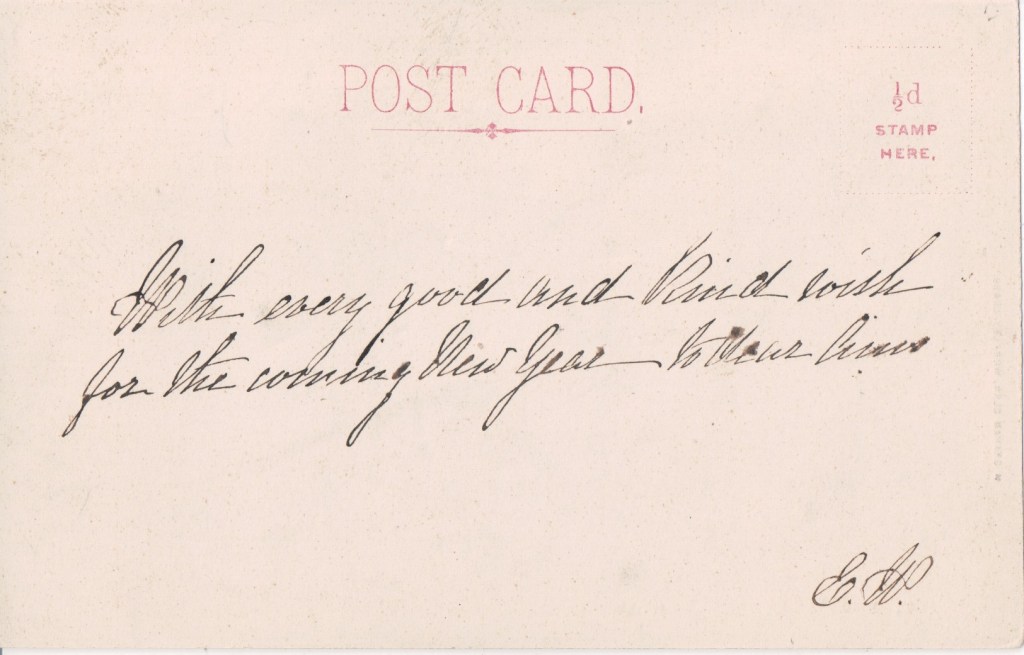 POST CARD.
½d
STAMP
HERE.
With every good and Kind wish
for the coming New Year to dear
E.W.